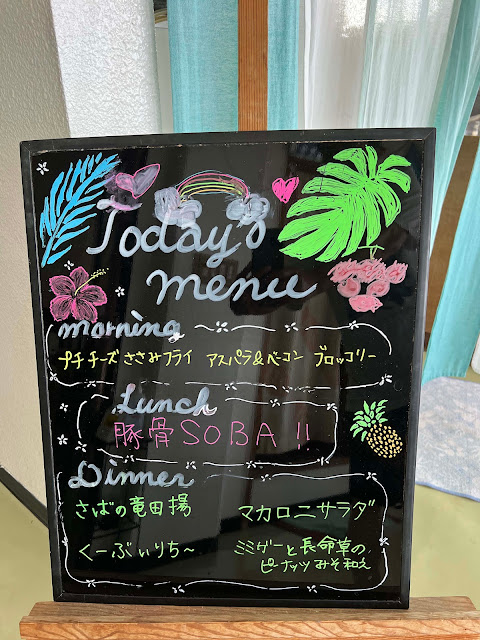 Today's
menu
morning
プチチーズささみフライ アスパラ&ベーコン ブロッコリー
Lunch
豚骨SOBA!!
Dinner
さばの竜田揚 マカロニサラダ
くーぶいりち〜 ミミガーと長命草の
ピーナッツみそ和え